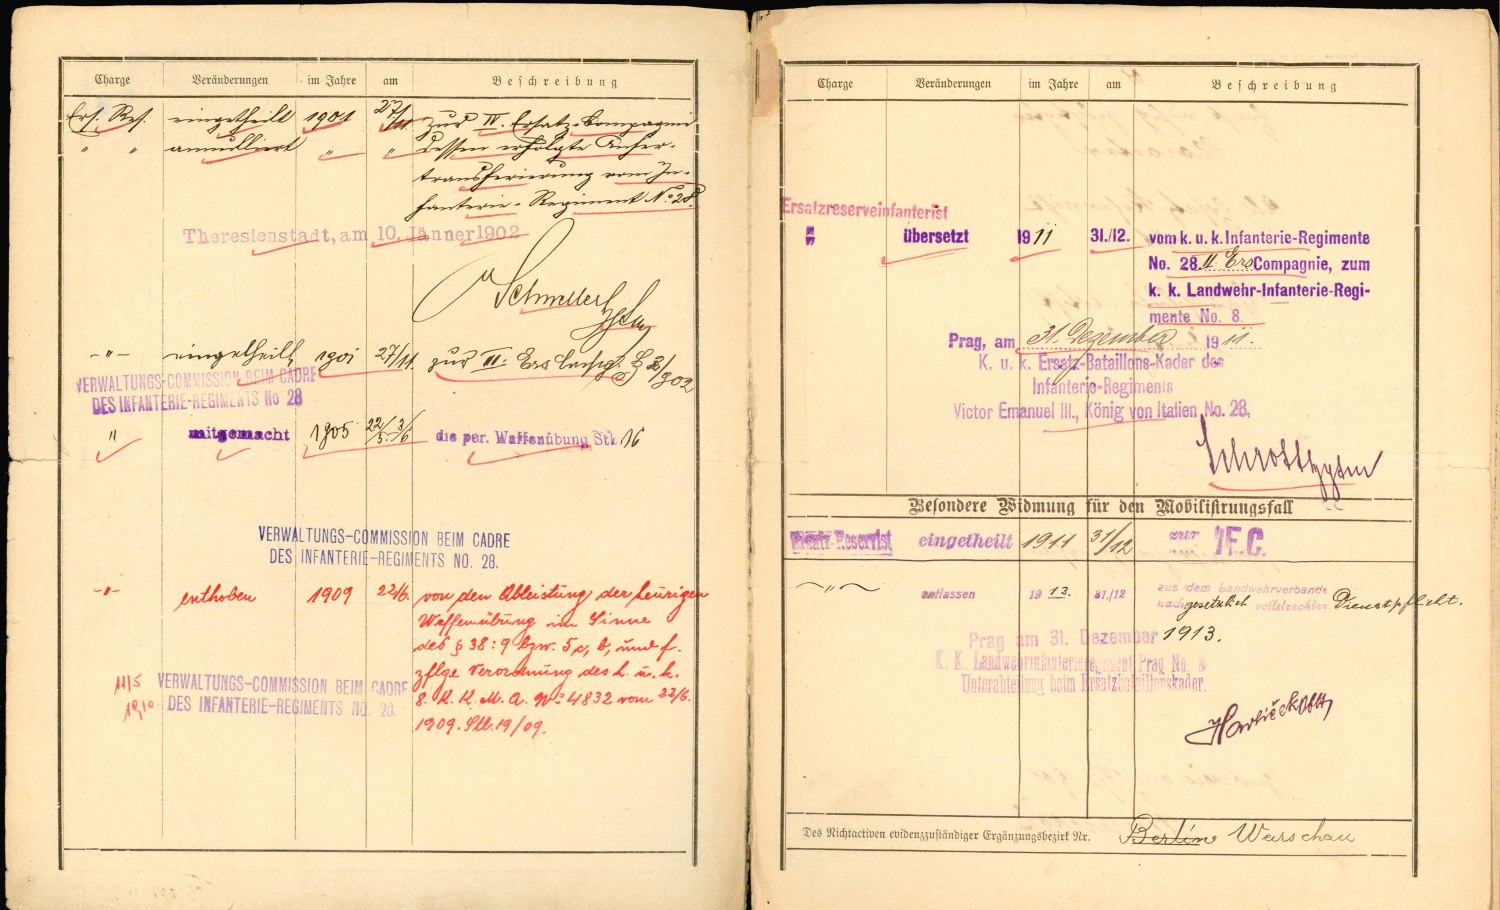 Charge Veränderungen im Jahre am Beschreibung
Ers. Res. eingetheilt 1901 27/11 zur IV. Ersatz-Compagnie
" " annulliert " " dessen erfolgte Anher-
transferierung vom In-
fanterie-Regiment No 28.
Theresienstadt, am 10. Jänner 1902
-"- eingetheilt 1901 27/11. zur III. Ers
VERWALTUNGS-COMMISSION BEIM CADRE
DES INFANTERIE-REGIMENTS No 28
" mitgemacht 1905 22/5. 3/6 die per. Waffenübung Stl. 16
VERWALTUNGS-COMMISSION BEIM CADRE
DES INFANTERIE-REGIMENTS NO. 28.
-"- enthoben 1909 22/6. von den Ableistung der heurigen
Waffenübung im Sinne
des § 38:9 bzw. 5 c, b, und f.
zflge Verordnung des k. u. k.
8. K. K. M. A. No 4832 vom 22/6.
1909. Stl. 19/09.
11/5 VERWALTUNGS-COMMISSION BEIM CADRE
1910 DES INFANTERIE-REGIMENTS NO. 28.
Charge Veränderungen im Jahre am Beschreibung
Ersatzreserveinfanterist
" übersetzt 1911 31./12. vom k. u. k. Infanterie-Regimente
No. 28 II Ers Compagnie, zum
k. k. Landwehr-Infanterie-Regi-
mente No. 8.
Prag, am 31. Dezember 1911.
K. u. k. Ersatz-Bataillons-Kader des
Infanterie-Regiments
Victor Emanuel III., König von Italien No. 28.
Besondere Widmung für den Mobilisirungsfall
Ersatz-Reservist eingetheilt 1911 31/12 zur
-"- entlassen 1913. 31./12 aus dem Landwehrverbande
nach gesetzlich vollstreckter Dienstpflicht.
Prag am 31. Dezember 1913.
K. K. Landwehrinfanterieregiment Prag No. 8
Unterabteilung beim Ersatzbataillonskader.
Des Nichtactiven evidenzzuständiger Ergänzungsbezirk Nr. Berlin Warschau